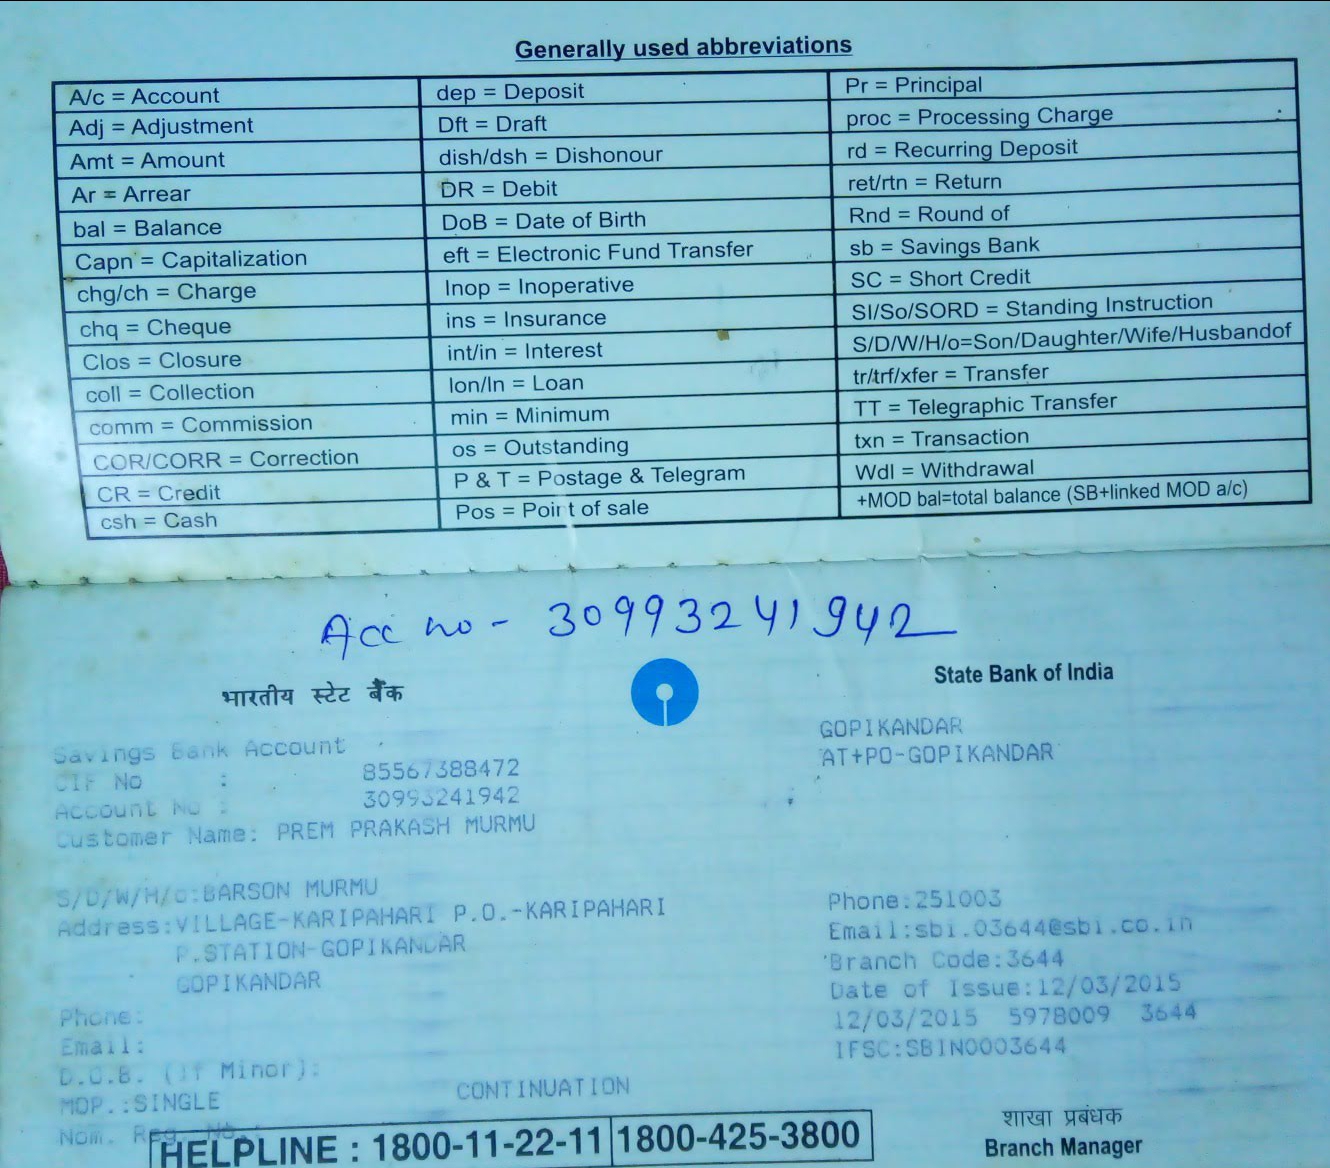 Generally used abbreviations
A/c = Account
Adj = Adjustment
Amt = Amount
Ar = Arrear
bal = Balance
Capn = Capitalization
chg/ch = Charge
chq = Cheque
Clos = Closure
coll = Collection
comm = Commission
COR/CORR = Correction
CR = Credit
csh = Cash
dep = Deposit
Dft = Draft
dish/dsh = Dishonour
DR = Debit
DoB = Date of Birth
eft = Electronic Fund Transfer
Inop = Inoperative
ins = Insurance
int/in = Interest
lon/ln = Loan
min = Minimum
os = Outstanding
P & T = Postage & Telegram
Pos = Point of sale
Pr = Principal
proc = Processing Charge
rd = Recurring Deposit
ret/rtn = Return
Rnd = Round of
sb = Savings Bank
SC = Short Credit
SI/So/SORD = Standing Instruction
S/D/W/H/o=Son/Daughter/Wife/Husbandof
tr/trf/xfer = Transfer
TT = Telegraphic Transfer
txn = Transaction
Wdl = Withdrawal
+MOD bal=total balance (SB+linked MOD a/c)
Acc no - 30993241942
भारतीय स्टेट बैंक
State Bank of India
Savings Bank Account
CIF No : 85567388472
Account No : 30993241942
Customer Name: PREM PRAKASH MURMU
S/D/W/H/o:BARSON MURMU
Address:VILLAGE-KARIPAHARI P.O.-KARIPAHARI
P.STATION-GOPIKANDAR
GOPIKANDAR
Phone:
Email:
D.O.B. (If Minor):
MOP.:SINGLE
Nom. Reg. No.:
CONTINUATION
GOPIKANDAR
AT+PO-GOPIKANDAR
Phone:251003
Email:sbi.03644@sbi.co.in
Branch Code:3644
Date of Issue:12/03/2015
12/03/2015 5978009 3644
IFSC:SBIN0003644
शाखा प्रबंधक
Branch Manager
HELPLINE : 1800-11-22-11 1800-425-3800